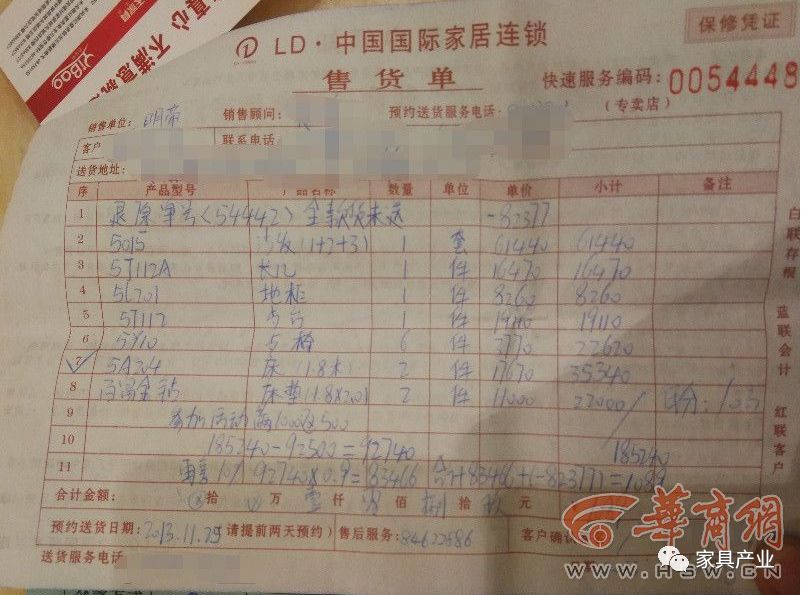 YiBao
真心 不满意就
LD·中国国际家居连锁
保修凭证
售货单
快速服务编码：0054448
（专卖店）
销售单位：明帝 销售顾问： 预约送货服务电话：
客户 联系电话
送货地址：
序 产品型号 产品名称 数量 单位 单价 小计 备注
1 退原单号(54442)全款货未送 -82377
2 5015 沙发(1+2+3) 1 套 61440 61440
3 5T112A 长几 1 件 16470 16470
4 5L201 地柜 1 件 8260 8260
5 5T112 1 件 19110 19110
6 5Y10 6 件 3770 22620
7 5A204 床(1.8米) 2 件 17670 35340
8 床垫(1.8x2.0) 2 件 11000 22000
9 参加活动满1000送500
10 185240-92500=92740 185240
11 再享10% 92740x0.9=83466 合计83466+(-82377)=1089
合计金额： ⊗拾 万 壹仟 佰 捌拾 玖元
预约送货日期：2013.11.25 请提前两天预约） 售后服务：84622686 客户确认
送货服务电话
白联存根 蓝联会计 红联客户
华商网
WWW.HSW.CN
家具产业